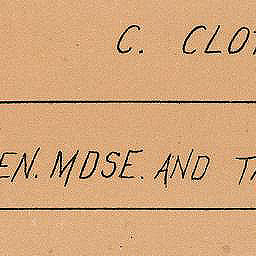 C. CLO
EN. MDSE. AND T